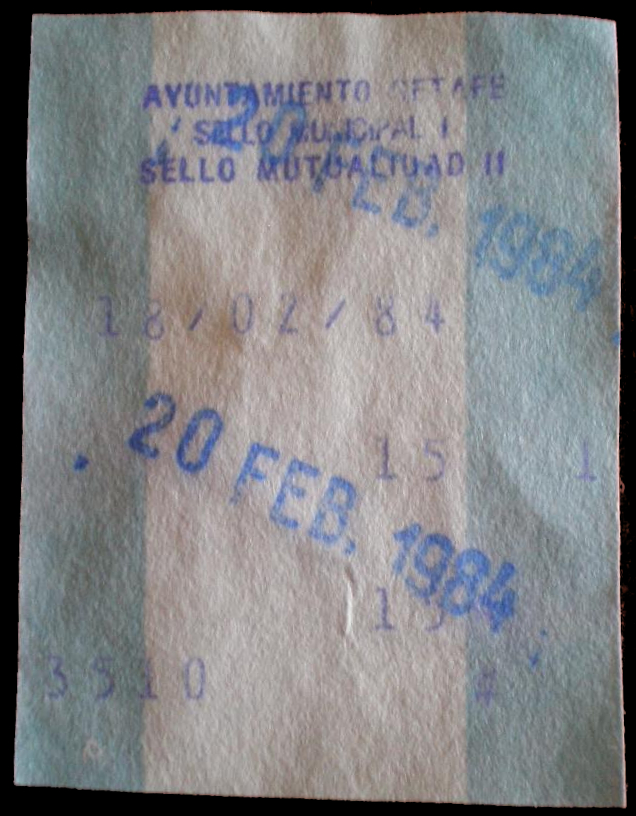 AYUNTAMIENTO GETAFE
SELLO MUNICIPAL I
SELLO MUTUALIDAD II
20 FEB. 1984
18/02/84
15 1
20 FEB. 1984
15
3510 #